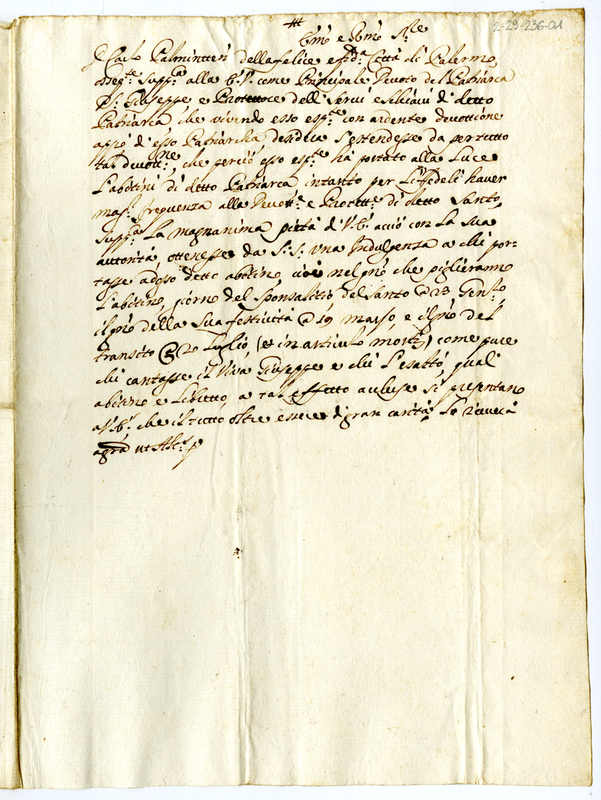 2-29-236-01
Em̃o e Rm̃o Sre
D. Carlo Palminteri della felice e fda Città di Palermo
osseqte suppca alla V.E. come Principale Devoto del Patriarca
S. Giuseppe e Protettore delli Servi e Schiavi di detto
Patriarca che vivendo esso espte con ardente devottione
appo d'esso Patriarcha desidera s'estendesse da per tutto
tal devotne, che perciò esso espte hà portato alla Luce
l'abitini di detto Patriarca intanto per li Fedeli haver
magr frequenza alla Devotte e Protette di detto Santo
suppca La magnanima pietà di V.E. acciò con La sua
autorità ottenesse da S. S. una Indulgenza a chi por-
tasse adoso detto abitino cioè nel gno che piglieranno
l'abitino, giorno del Sponsalitio del Santo a 23 Genro
il gno della Sua festività a 19 marso, e il gno del
transito a 20 Luglio (et in articulo mortis) come pure
chi cantasse il Viva Giuseppe e chi l'esattò, quali
abitino e Libitto, a tal effetto accluse si presentano
a V.E. che il tutto oltre essere di gran carità Lo riceverà
a grã ut Alts